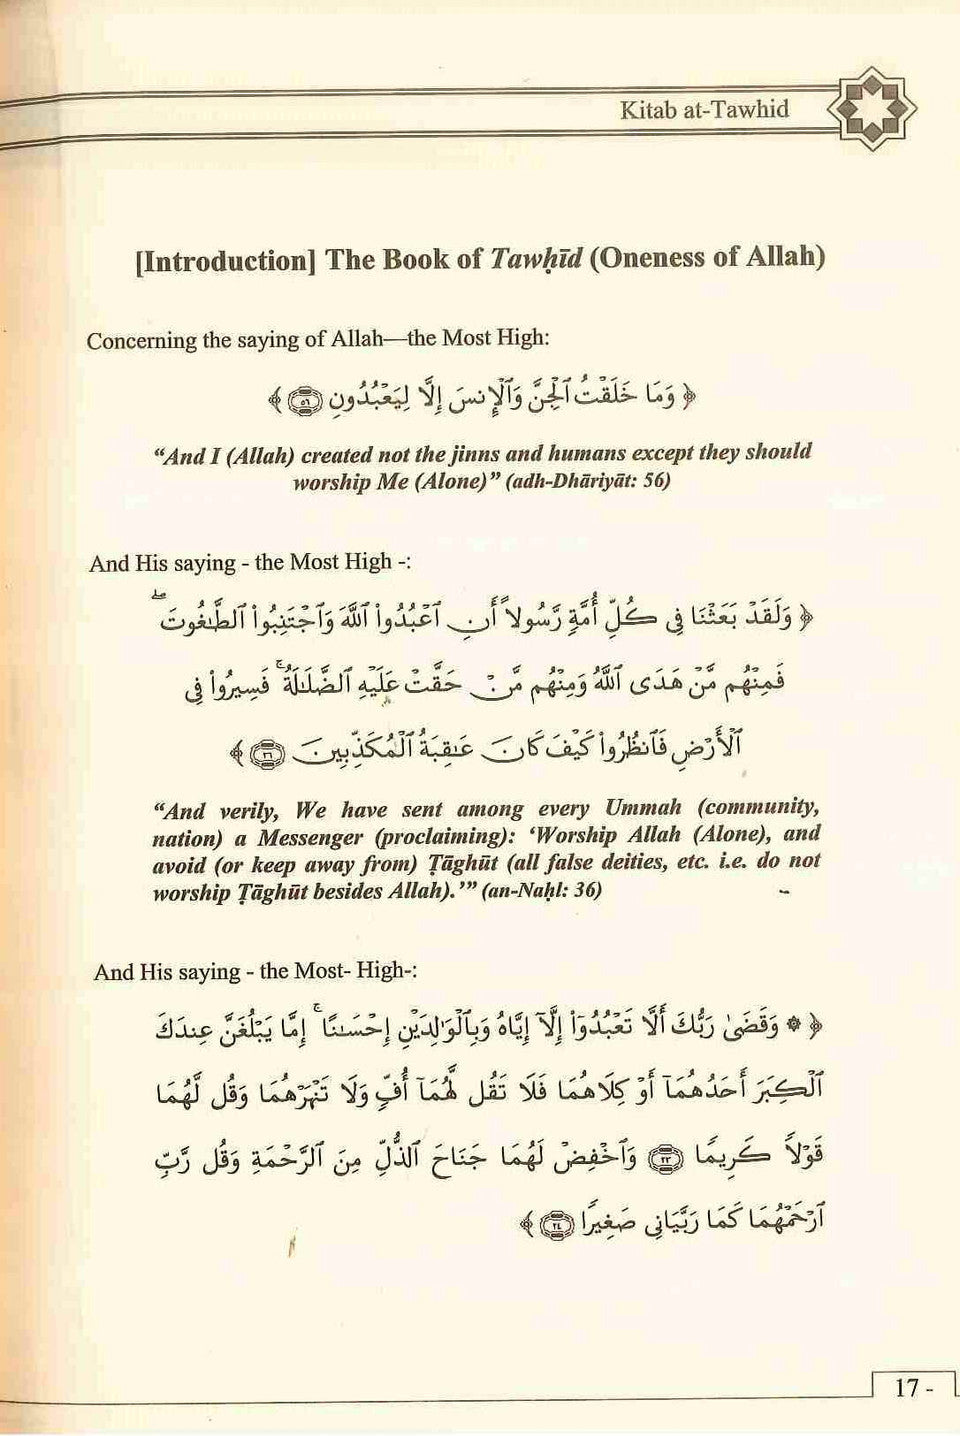 Kitab at-Tawhid
[Introduction] The Book of Tawḥīd (Oneness of Allah)
Concerning the saying of Allah—the Most High:
﴿ وَمَا خَلَقْتُ ٱلْجِنَّ وَٱلْإِنسَ إِلَّا لِيَعْبُدُونِ ٥٦ ﴾
“And I (Allah) created not the jinns and humans except they should
worship Me (Alone)” (adh-Dhāriyāt: 56)
And His saying - the Most High -:
﴿ وَلَقَدْ بَعَثْنَا فِى كُلِّ أُمَّةٍ رَّسُولًا أَنِ ٱعْبُدُوا۟ ٱللَّهَ وَٱجْتَنِبُوا۟ ٱلطَّٰغُوتَ ۖ
فَمِنْهُم مَّنْ هَدَى ٱللَّهُ وَمِنْهُم مَّنْ حَقَّتْ عَلَيْهِ ٱلضَّلَٰلَةُ ۚ فَسِيرُوا۟ فِى
ٱلْأَرْضِ فَٱنظُرُوا۟ كَيْفَ كَانَ عَٰقِبَةُ ٱلْمُكَذِّبِينَ ٣٦ ﴾
“And verily, We have sent among every Ummah (community,
nation) a Messenger (proclaiming): ‘Worship Allah (Alone), and
avoid (or keep away from) Ṭāghūt (all false deities, etc. i.e. do not
worship Ṭāghūt besides Allah).’” (an-Naḥl: 36)
And His saying - the Most- High-:
﴿ ۞ وَقَضَىٰ رَبُّكَ أَلَّا تَعْبُدُوٓا۟ إِلَّآ إِيَّاهُ وَبِٱلْوَٰلِدَيْنِ إِحْسَٰنًا ۚ إِمَّا يَبْلُغَنَّ عِندَكَ
ٱلْكِبَرَ أَحَدُهُمَآ أَوْ كِلَاهُمَا فَلَا تَقُل لَّهُمَآ أُفٍّ وَلَا تَنْهَرْهُمَا وَقُل لَّهُمَا
قَوْلًا كَرِيمًا ٢٣ وَٱخْفِضْ لَهُمَا جَنَاحَ ٱلذُّلِّ مِنَ ٱلرَّحْمَةِ وَقُل رَّبِّ
ٱرْحَمْهُمَا كَمَا رَبَّيَانِى صَغِيرًا ٢٤ ﴾
17 -